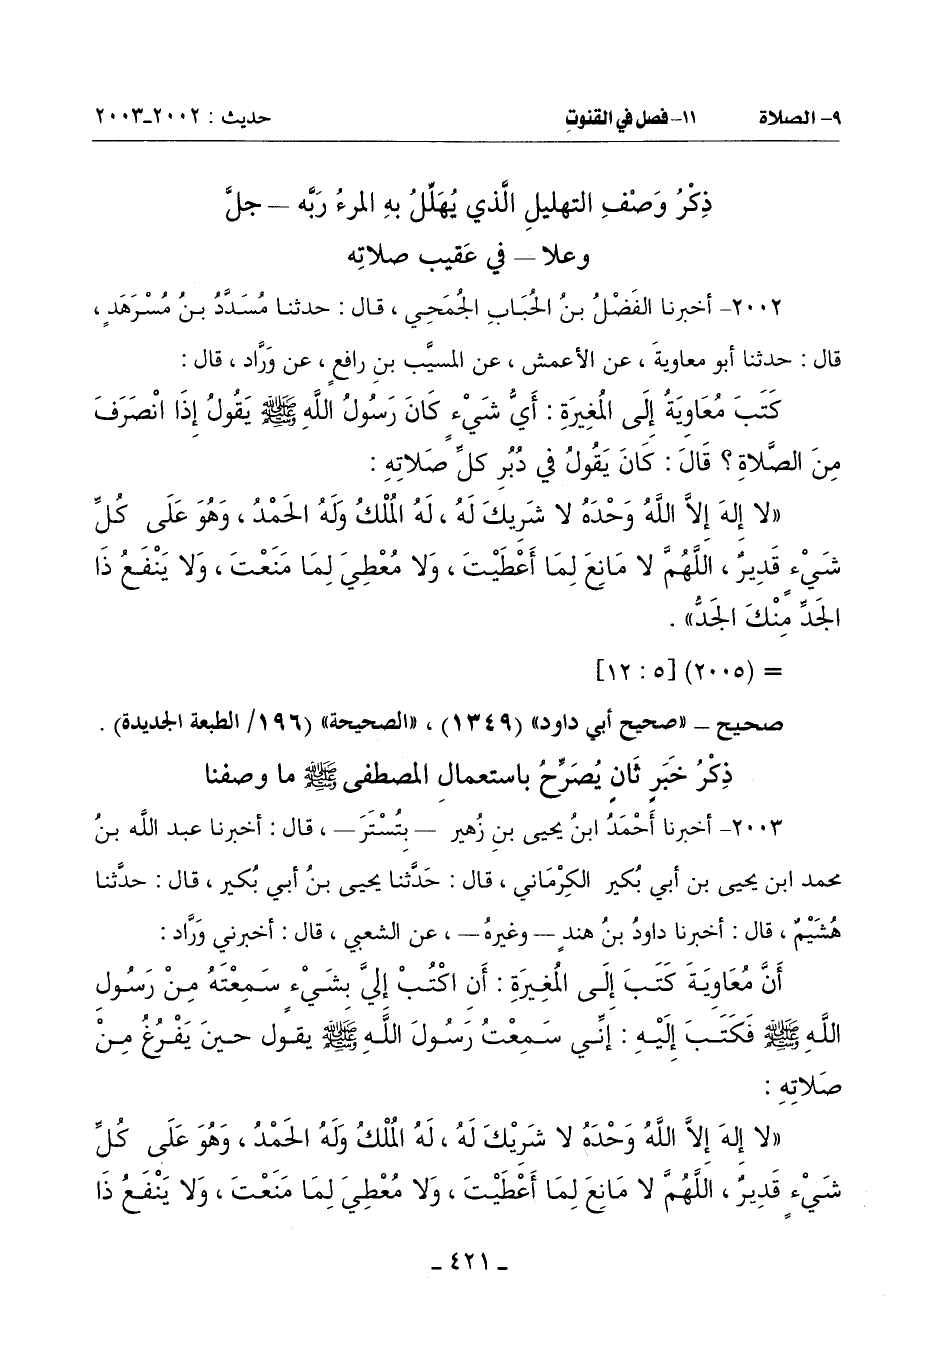 ٩- الصلاة ١١- فصل في القنوتِ حديث : ٢٠٠٢-٢٠٠٣
ذِكْرُ وَصْفِ التهليلِ الَّذي يُهَلِّلُ بهِ المرءُ رَبَّه – جلَّ
وعلا – في عَقيبِ صلاتِه
٢٠٠٢- أخبرنا الفَضْلُ بنُ الحُبَابِ الجُمَحِي ، قال : حدثنا مُسَدَّدُ بنُ مُسَرْهَدٍ ،
قال : حدثنا أبو معاويةَ ، عن الأعمش ، عن المسيَّب بنِ رافعٍ ، عن وَرَّاد ، قال :
كَتَبَ مُعَاوِيَةُ إِلَى المُغِيرَةِ : أَيُّ شَيْءٍ كَانَ رَسُولُ اللَّهِ ﷺ يَقُولُ إِذَا انْصَرَفَ
مِنَ الصَّلاةِ ؟ قَالَ : كَانَ يَقُولُ فِي دُبُرِ كلِّ صَلاتِهِ :
«لا إِلهَ إِلاَّ اللَّهُ وَحْدَهُ لا شَرِيكَ لَهُ ، لَهُ المُلْكُ وَلَهُ الحَمْدُ ، وَهُوَ عَلَى كُلِّ
شَيْءٍ قَدِيرٌ ، اللَّهُمَّ لا مَانِعَ لِمَا أَعْطَيْتَ ، وَلا مُعْطِيَ لِمَا مَنَعْتَ ، وَلا يَنْفَعُ ذَا
الجَدِّ مِنْكَ الجَدُّ» .
= (٢٠٠٥) [٥ : ١٢]
صحيح – «صحيح أبي داود» (١٣٤٩) ، «الصحيحة» (١٩٦/ الطبعة الجديدة) .
ذِكْرُ خَبَرٍ ثَانٍ يُصَرِّحُ باستعمال المصطفى ﷺ ما وصفنا
٢٠٠٣- أخبرنا أَحْمَدُ ابنُ يحيى بنِ زُهير – بِتُسْتَرَ – ، قال : أخبرنا عبد اللَّه بنُ
محمد ابن يحيى بن أبي بُكير الكِرْمَاني ، قال : حَدَّثنا يحيى بنُ أبي بُكير ، قال : حدَّثنا
هُشَيْمٌ ، قال : أخبرنا داودُ بنُ هندٍ – وغيرهُ – ، عن الشعبي ، قال : أخبرني وَرَّاد :
أَنَّ مُعَاوِيَةَ كَتَبَ إِلَى المُغِيرَةِ : أَن اكْتُبْ إِليَّ بِشَيْءٍ سَمِعْتَهُ مِنْ رَسُولِ
اللَّهِ ﷺ فَكَتَبَ إِلَيْهِ : إِنِّي سَمِعْتُ رَسُولَ اللَّهِ ﷺ يقول حينَ يَفْرُغُ مِنْ
صَلاتِهِ :
«لا إِلهَ إِلاَّ اللَّهُ وَحْدَهُ لا شَرِيْكَ لَهُ ، لَهُ المُلْكُ وَلَهُ الحَمْدُ ، وَهُوَ عَلَى كُلِّ
شَيْءٍ قَدِيرٌ ، اللَّهُمَّ لا مَانِعَ لِمَا أَعْطَيْتَ ، وَلا مُعْطِيَ لِمَا مَنَعْتَ ، وَلا يَنْفَعُ ذَا
- ٤٢١ -